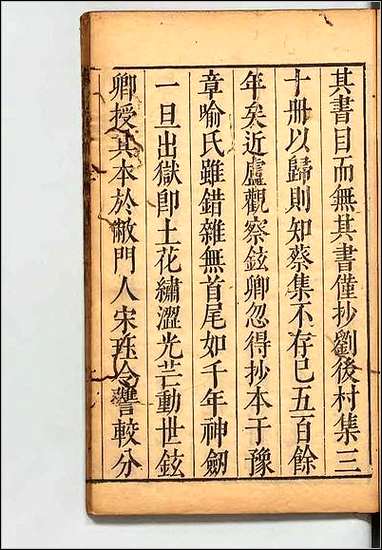 其書目而無其書僅抄劉後村集三
十冊以歸則知蔡集不存已五百餘
年矣近盧觀察鉉卿忽得抄本于豫
章喻氏雖錯雜無首尾如千年神劒
一旦出獄即土花繡澀光芒動世鉉
卿授其本於敝門人宋珏令讐較分